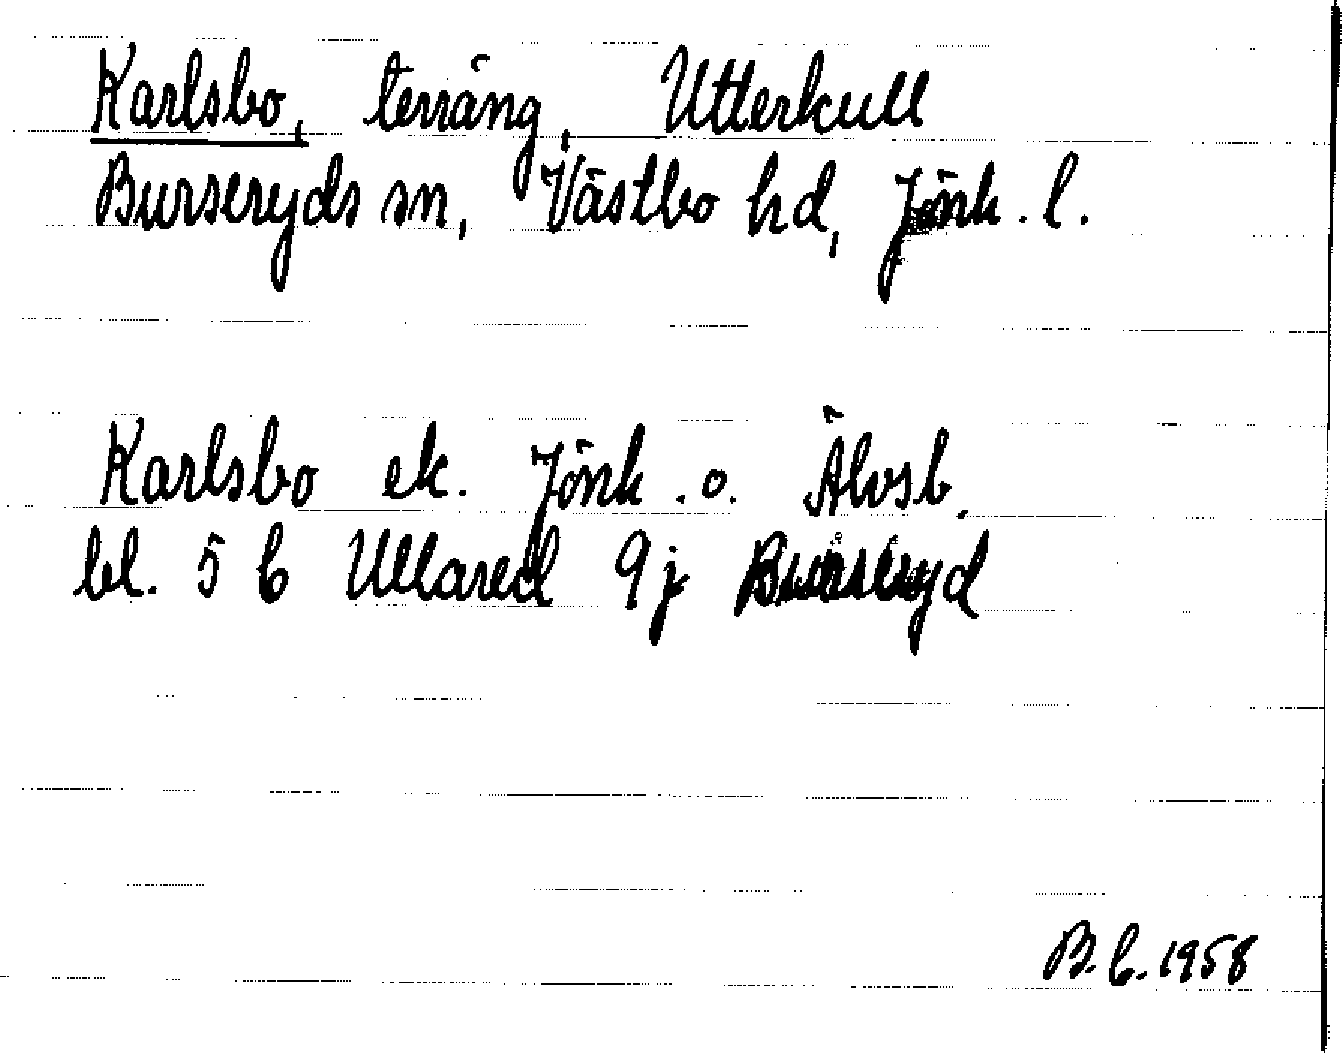 Karlsbo, terräng, Utterkull
Burseryds sn, Västbo hd, Jönk. l.
Karlsbo ek. Jönk. o. Älvsb.
bl. 5 C Ullared 9j Burseryd
B.L. 1958